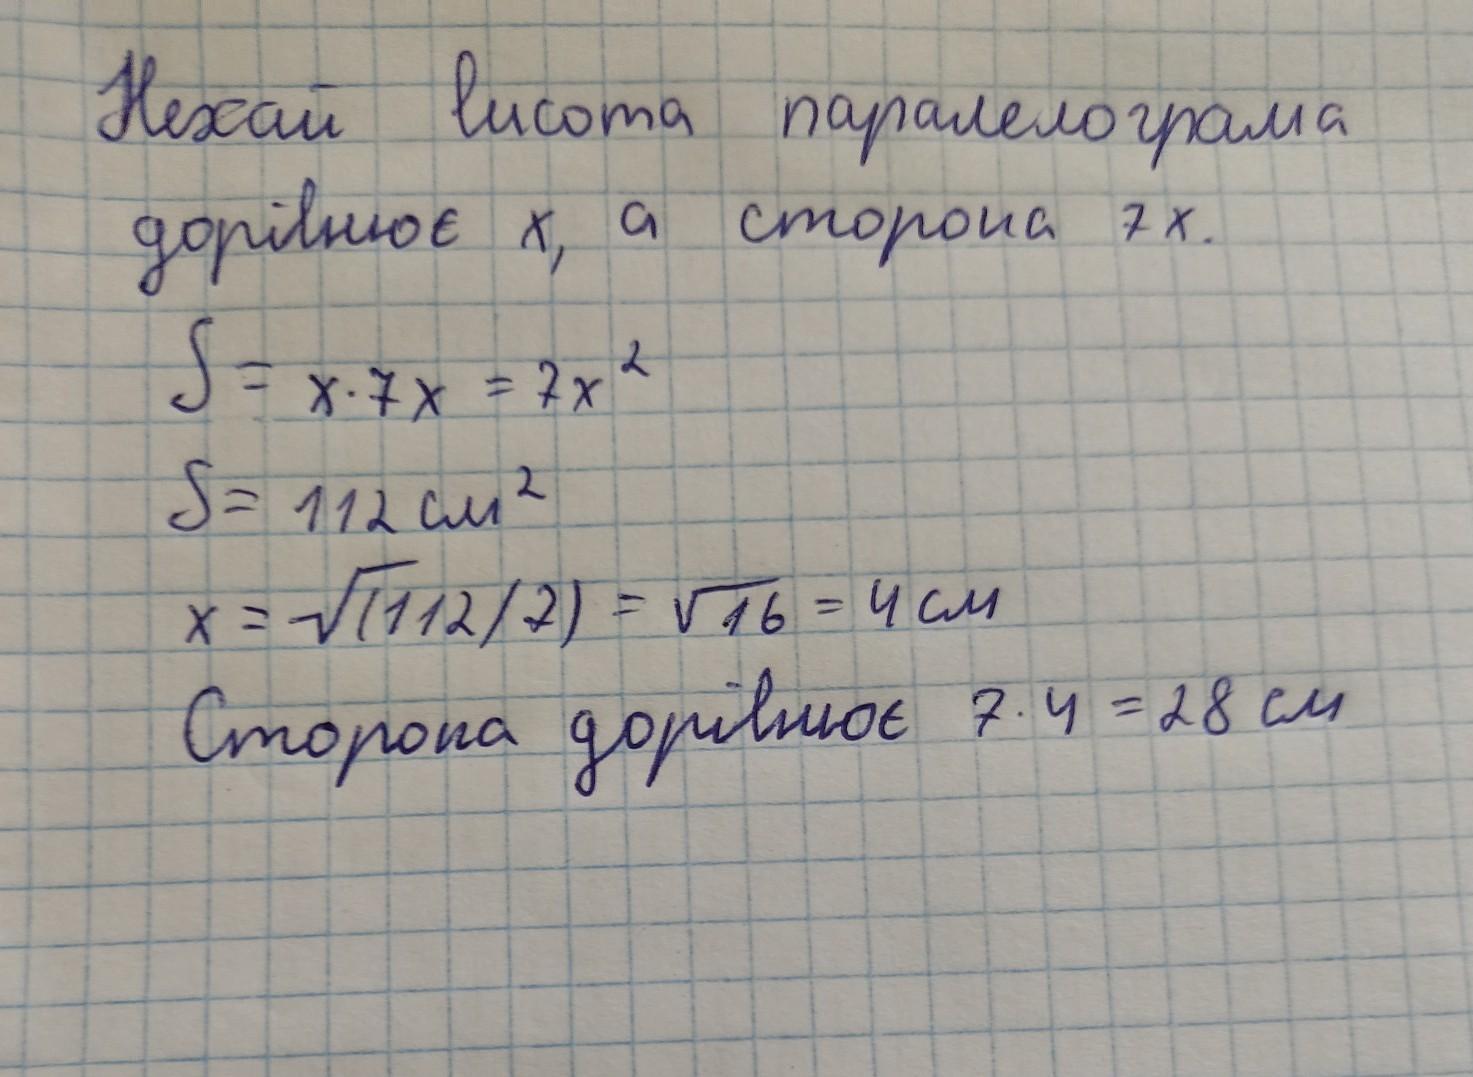 Нехай висота паралелограма
дорівнює x, а сторона 7x.
S = x·7x = 7x²
S = 112 см²
x = √(112/7) = √16 = 4 см
Сторона дорівнює 7·4 = 28 см